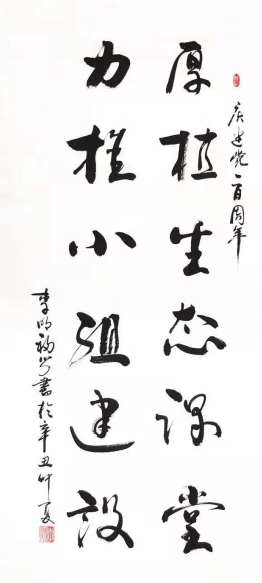 庆建党一百周年
厚植生态课堂
力推小组建设
李明福书于辛丑仲夏